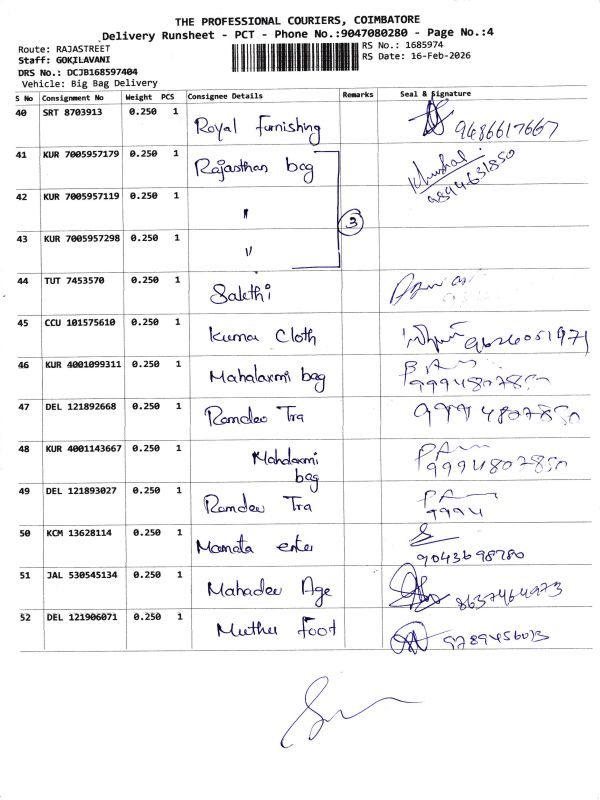 THE PROFESSIONAL COURIERS, COIMBATORE
Delivery Runsheet - PCT - Phone No.:9047080280 - Page No.:4
Route: RAJASTREET
RS No.: 1685974
Staff: GOKILAVANI
RS Date: 16-Feb-2026
DRS No.: DCJB168597404
Vehicle: Big Bag Delivery
S No Consignment No Weight PCS Consignee Details Remarks Seal & Signature
40 SRT 8703913 0.250 1 Royal Furnishing 9486617667
41 KUR 7005957179 0.250 1 Rajasthan bag Khushal 9894631850
42 KUR 7005957119 0.250 1 " 3
43 KUR 7005957298 0.250 1 "
44 TUT 7453570 0.250 1 Sakthi
45 CCU 101575610 0.250 1 Kuma Cloth 9626051971
46 KUR 4001099311 0.250 1 Mahalaxmi bag 9994807850
47 DEL 121892668 0.250 1 Ramdev Tra 9994807850
48 KUR 4001143667 0.250 1 Mahalaxmi
bag 9994807850
49 DEL 121893027 0.250 1 Ramdev Tra 9994
50 KCM 13628114 0.250 1 Mamata enter 9043698780
51 JAL 530545134 0.250 1 Mahadev Age 8637464973
52 DEL 121906071 0.250 1 Muthu Foot